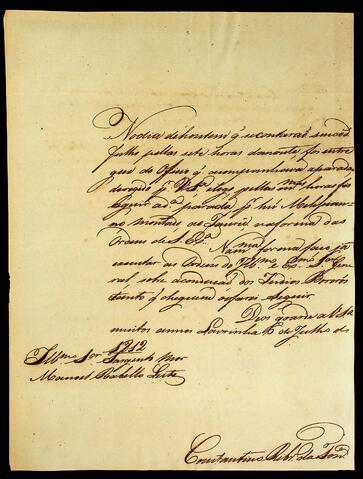 No dia de hontem q' se contaraõ sinco de
Julho pellas sete horas da noute, foi entre
gue do Oficio q' acompanhava a parada
dirigido p.ª V. S.ª e logo pellas m.mas horas fis
seguir a d.ª parada p.r hú
no montado na forma das
Ordens de S. Ex.ª Na m.ma forma faço já
executar as Ordens do Ill.mo e Ex.mo Snr' Gene
ral, sobre a conducaõ dos Indios Bororos
tanto q' cheguem os farei seguir.
Deos guarde a V. S.ª
muitos annos Lavrinha 6 de Julho de
1812
Ill.mo Snr' Sargento Mor
Manoel Rabello Leite
Constantino Rib.ro da Fon.ca